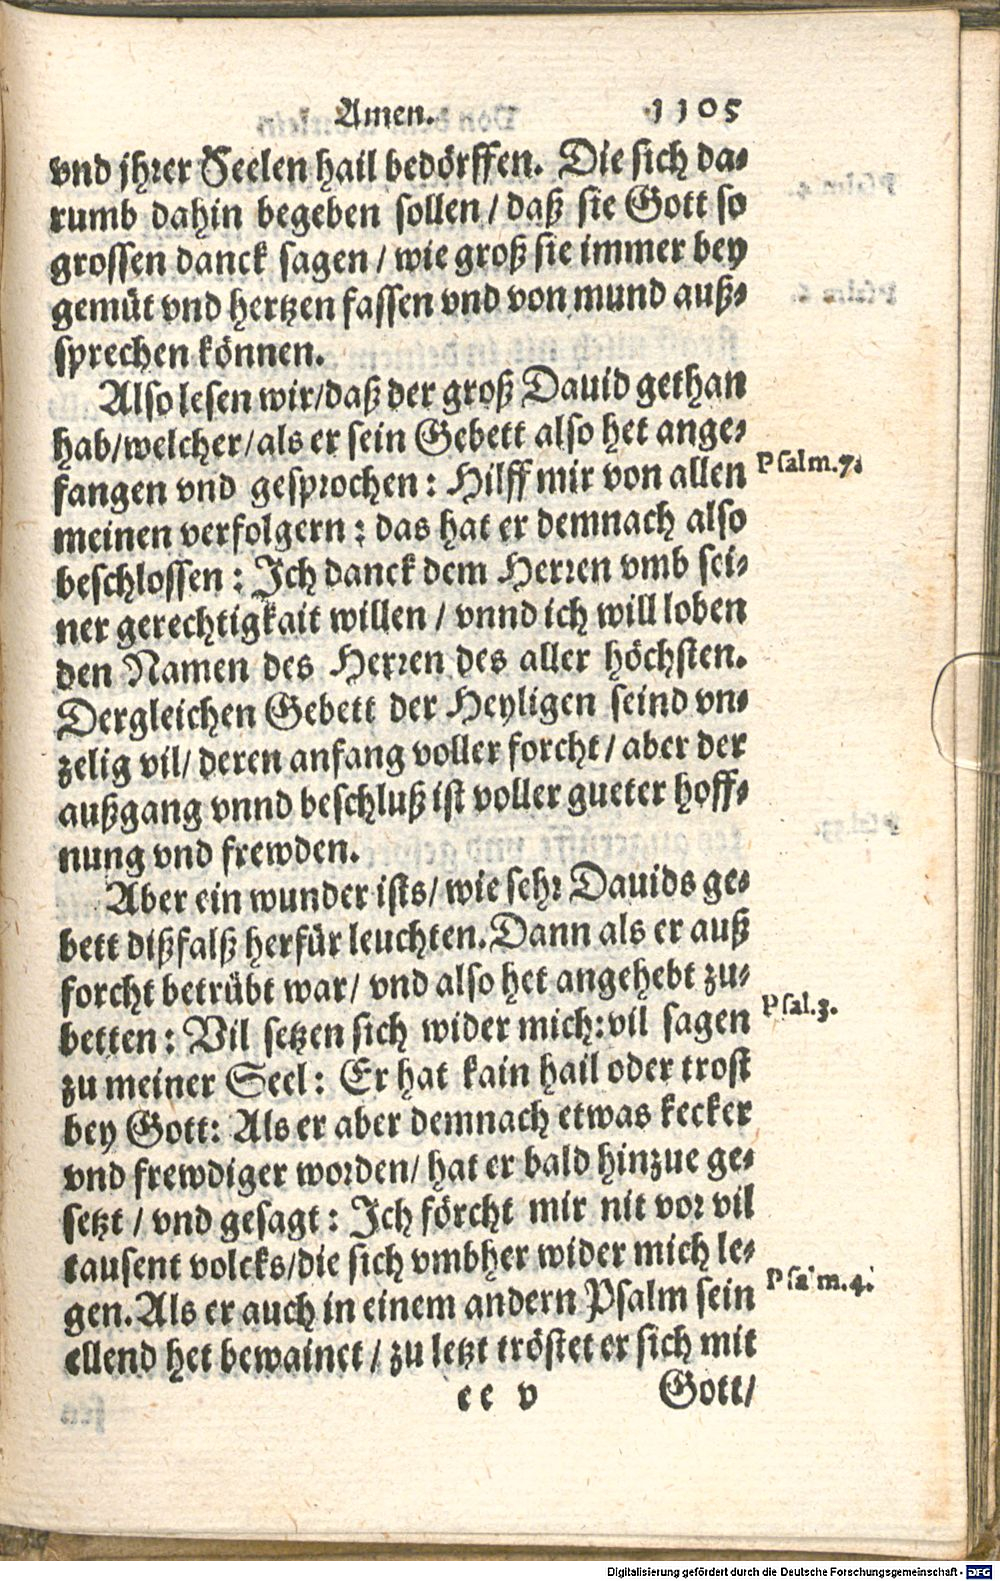 Amen. 1105
vnd jhrer Seelen hail bedörffen. Die sich da-
rumb dahin begeben sollen / daß sie Gott so
grossen danck sagen / wie groß sie immer bey
gemüt vnd hertzen fassen vnd von mund auß-
sprechen können.
Also lesen wir/daß der groß Dauid gethan
hab/welcher/als er sein Gebett also het ange-
fangen vnd gesprochen : Hilff mir von allen
Psalm.7.
meinen verfolgern : das hat er demnach also
beschlossen : Ich danck dem Herren vmb sei-
ner gerechtigkait willen / vnnd ich will loben
den Namen des Herren des aller höchsten.
Dergleichen Gebett der Heyligen seind vn-
zelig vil/ deren anfang voller forcht / aber der
außgang vnnd beschluß ist voller gueter hoff-
nung vnd frewden.
Aber ein wunder ists/ wie sehr Dauids ge-
bett dißfalß herfür leuchten. Dann als er auß
forcht betrübt war/ vnd also het angehebt zu-
betten : Vil setzen sich wider mich:vil sagen
Psal.3.
zu meiner Seel : Er hat kain hail oder trost
bey Gott: Als er aber demnach etwas kecker
vnd frewdiger worden/ hat er bald hinzue ge-
setzt / vnd gesagt : Ich förcht mir nit vor vil
tausent volcks/die sich vmbher wider mich le-
gen. Als er auch in einem andern Psalm sein
Psalm.4.
ellend het bewainet / zu letzt tröstet er sich mit
ee v Gott/
Digitalisierung gefördert durch die Deutsche Forschungsgemeinschaft - DFG